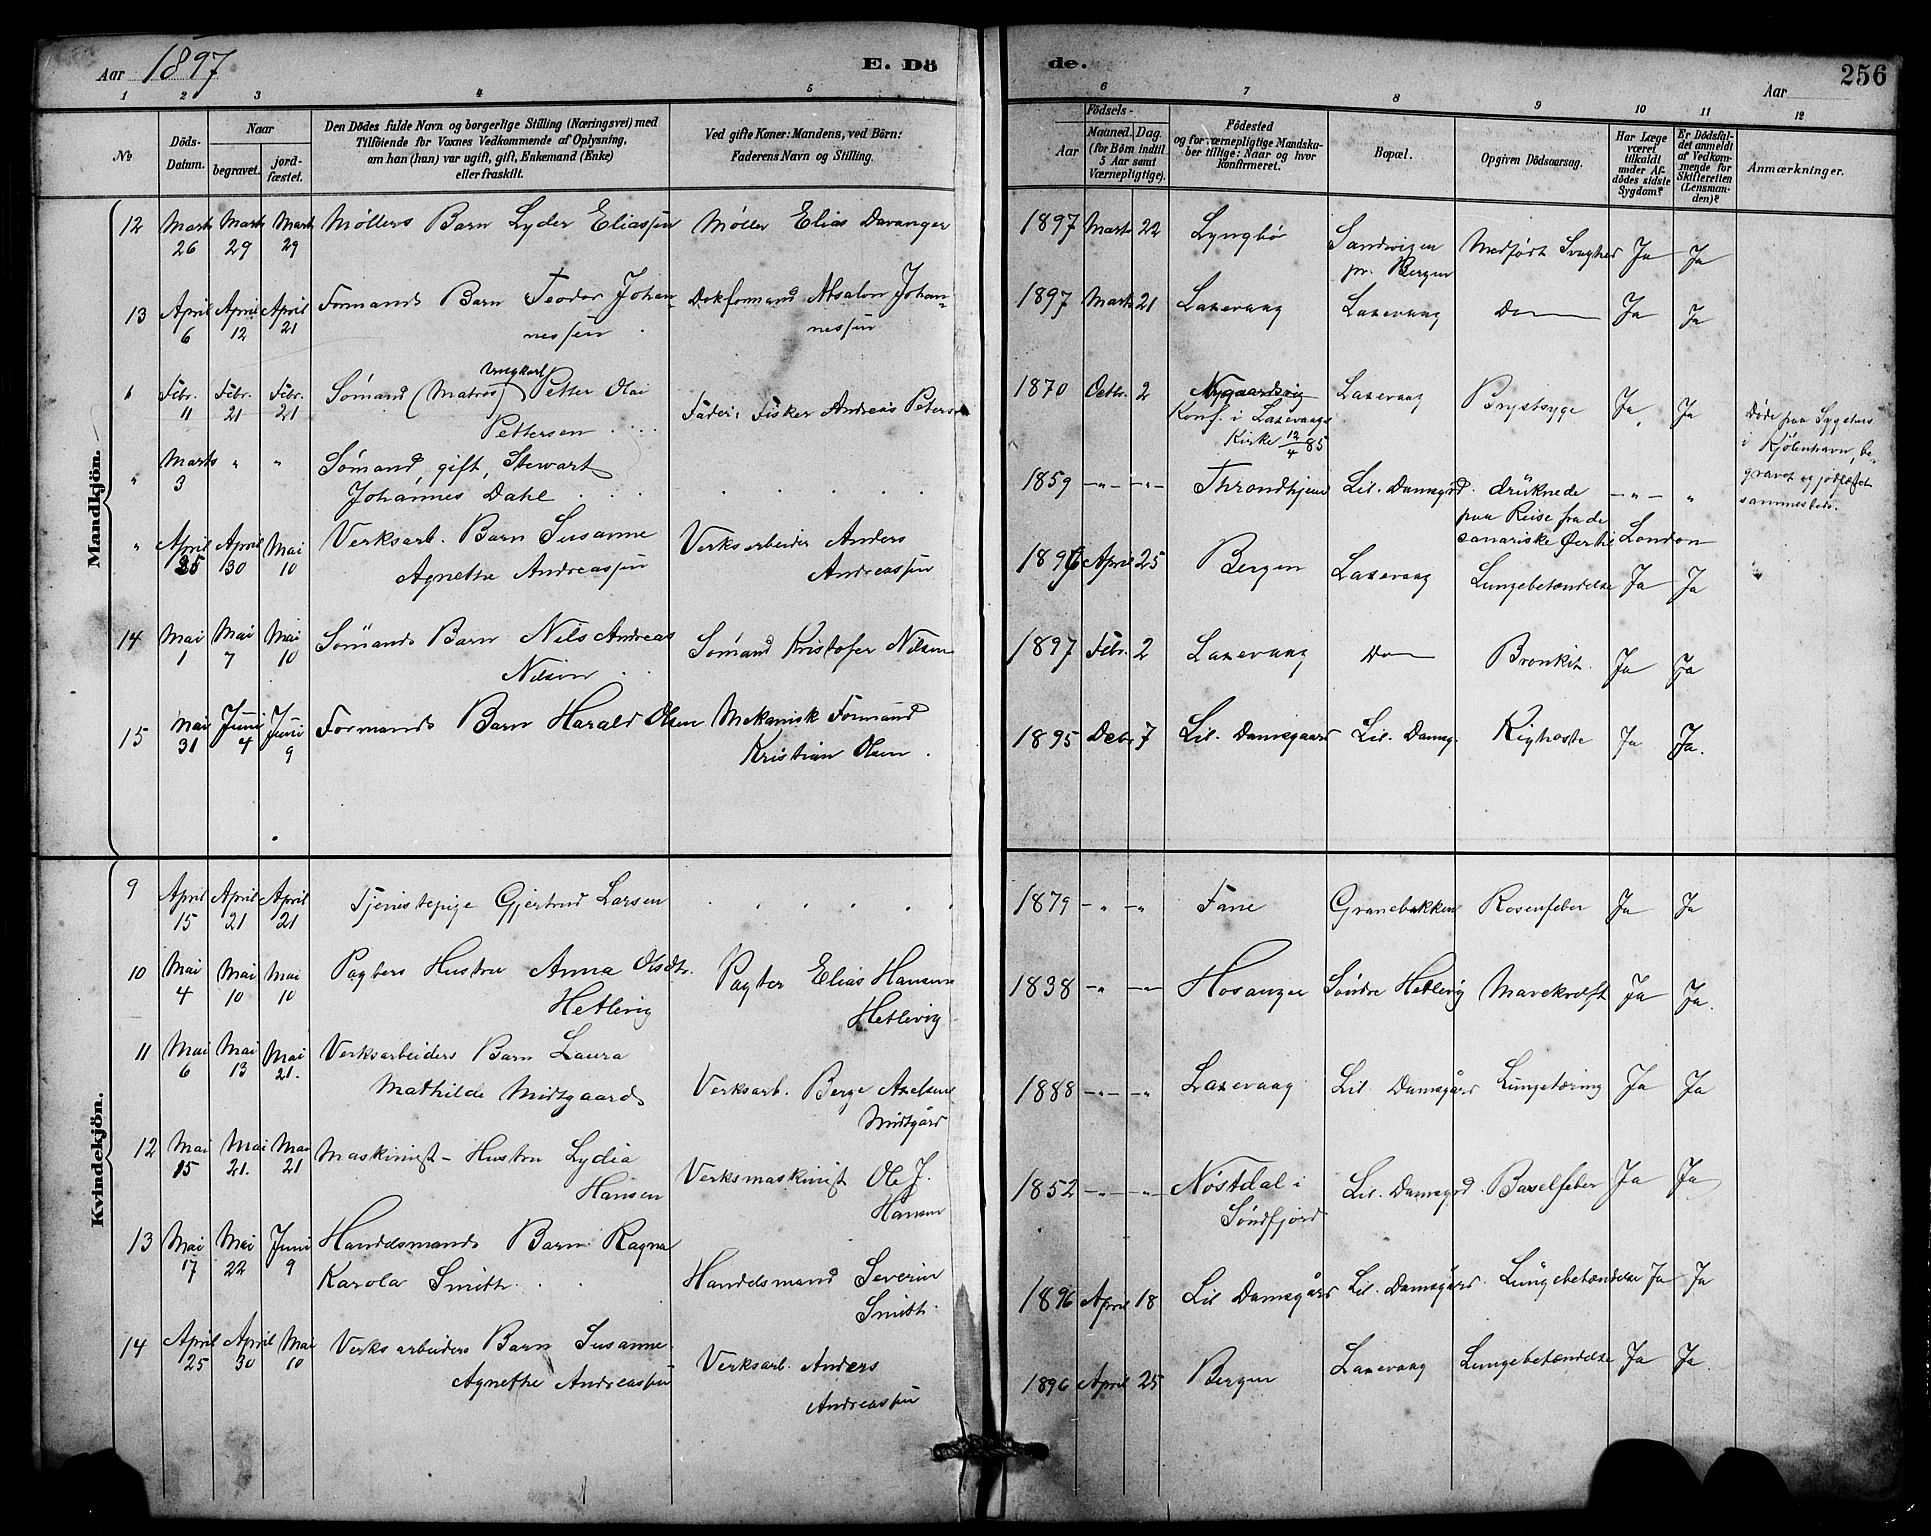 Aar 1897 E. Dö de. Aar 256
1 2 3 4 5 6 7 8 9 10 11 12
No
Döds-Datum.
Naar
begravet.
jord-fæstet.
Den Dödes fulde Navn og borgerlige Stilling (Næringsvei) med
Tilföiende for Voxnes Vedkommende af Oplysning,
om han (hun) var ugift, gift, Enkemand (Enke)
eller fraskilt.
Ved gifte Koner: Mandens, ved Börn:
Faderens Navn og Stilling.
Födsels-
Aar
Maaned. Dag.
(for Börn indtil
5 Aar samt
Værnepligtige).
Födested
og for værnepligtige Mandska-
ber tillige: Naar og hvor
Konfirmeret.
Bopæl.
Opgiven Dödsaarsag.
Har Læge
været
tilkaldt
under Af-
dödes sidste
Sygdom?
Er Dödsfal-
det anmeldt
af Vedkom-
mende for
Skifteretten
(Lensman-
den)?
Anmærkninger.
Mandkjön.
12 Marts 26 Marts 29 Marts 29 Møllers Barn Lyder Eliassen Møller Elias Davanger 1897 Marts 22 Lyngbø Sandvigen pr. Bergen Medfødt Svaghed Ja Ja
13 April 6 April 12 April 21 Formands Barn Teodor Johan-
nessen Dokformand Absalon Johan-
nessen 1897 Marts 21 Laxevaag Laxevaag Do Ja Ja
Febr. 11 Febr. 21 Febr. 21 Sømand (Matros) Ungkarl Petter Olai
Pettersen Fader: Fisker Andreas Peters 1870 Octbr. 2 Nygaardsvig
Konf. i Laxevaags
Kirke 12/4 85 Laxevaag Brystsyge Ja Ja Døde paa Sygehus
i Kjøbenhavn, be-
gravet og jordfæstet
sammesteds.
" Marts 3 " " Sømand, gift, Stewart
Johannes Dahl 1859 - " - - " - Throndhjem Lil. Damsgrd. druknede
paa Reise fra de
canariske Øer til London - " - "
" April 25 April 30 Mai 10 Verksarb. Barn Susanne
Agnethe Andreassen Verksarbeider Anders
Andreassen 1896 April 25 Bergen Laxevaag Lungebetændelse Ja Ja "
14 Mai 1 Mai 7 Mai 10 Sömands Barn Nils Andreas
Nilsen Sømand Kristofer Nilsen 1897 Febr. 2 Laxevaag Do Bronkit. Ja Ja
15 Mai 31 Juni 4 Juni 9 Formands Barn Harald Olsen Mekanisk Formand
Kristian Olsen 1895 Debr 7 Lil. Damsgaard Lil. Damsg. Kighoste Ja Ja.
Kvindekjön.
9 April 15 April 21 April 21 Tjenestepige Gjertrud Larsen 1879 - " - " Fane Granebakken Rosenfeber Ja Ja
10 Mai 4 Mai 10 Mai 10 Pagters Hustru Anna Olsdtr.
Hetlevig Pagter Elias Hansen
Hetlevig 1838 - " - " - Hosanger Söndre Hetlevig Mavekræft Ja Ja.
11 Mai 6 Mai 13 Mai 21. Verksarbeiders Barn Laura
Mathilde Midtgaard Verksarb. Berge Axelsen
Midtgård 1888 - " - - " Laxevaag Lil. Damsgård Lungetæring Ja Ja
12 Mai 15 Mai 21. Mai 21 Maskinist- Hustru Lydia
Hansen Verksmaskinist Ole J.
Hansen 1852 - " - - " - Nøstdal i
Söndfjord Lil. Damsgrd. Barselfeber Ja Ja
13 Mai 17 Mai 22 Juni 9 Handelsmands Barn Ragna
Karola Smith Handelsmand Severin
Smith. 1896 April 18 Lil Damsgård Lil. Damsgård. Lungebetændelse Ja Ja
14 April 25 April 30 Mai 10 Verksarbeiders Barn Susanne
Agnethe Andreassen Verksarb. Anders
Andreassen 1896 April 25 Bergen Laxevaag Lungebetændelse Ja Ja.